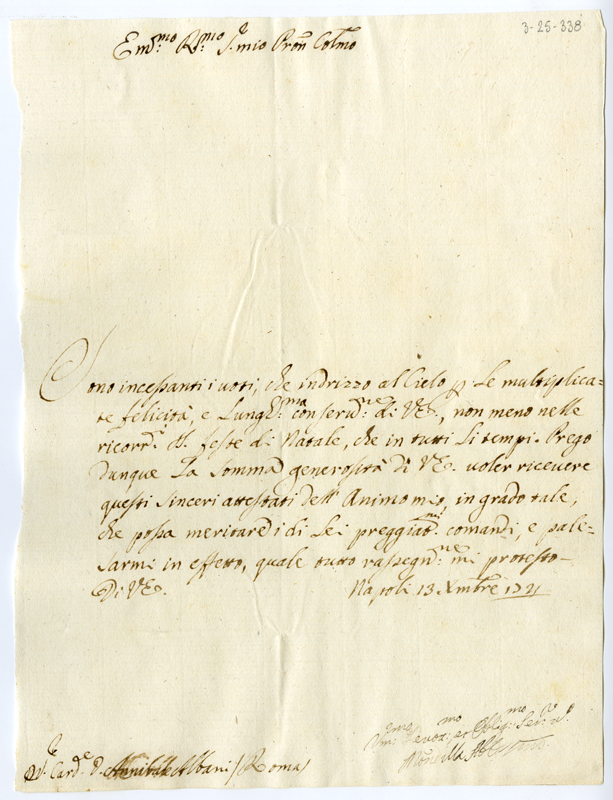 3-25-338
Em:mo R:mo S.e mio Pron Colmo
Sono incessanti i voti, che indrizzo al Cielo p. le multiplica=
te felicità, e Lungh:ma conserv:ne di V.E., non meno nelle
ricorr.e d. feste di Natale, che in tutti li tempi. Prego
dunque La somma generosità di V.E. voler ricevere
questi sinceri attestati dell'Animo mio, in grado tale,
che possa meritare i di Lei preggiat:mi comandi, e pale-
sarmi in effetto, quale tutto rassegn:ne mi protesto
Di V.E. Napoli 13 Xmbre 1721
Um:mo Devot:mo et Oblig:mo Ser:
Card.e D. Annibale Albani / Roma /